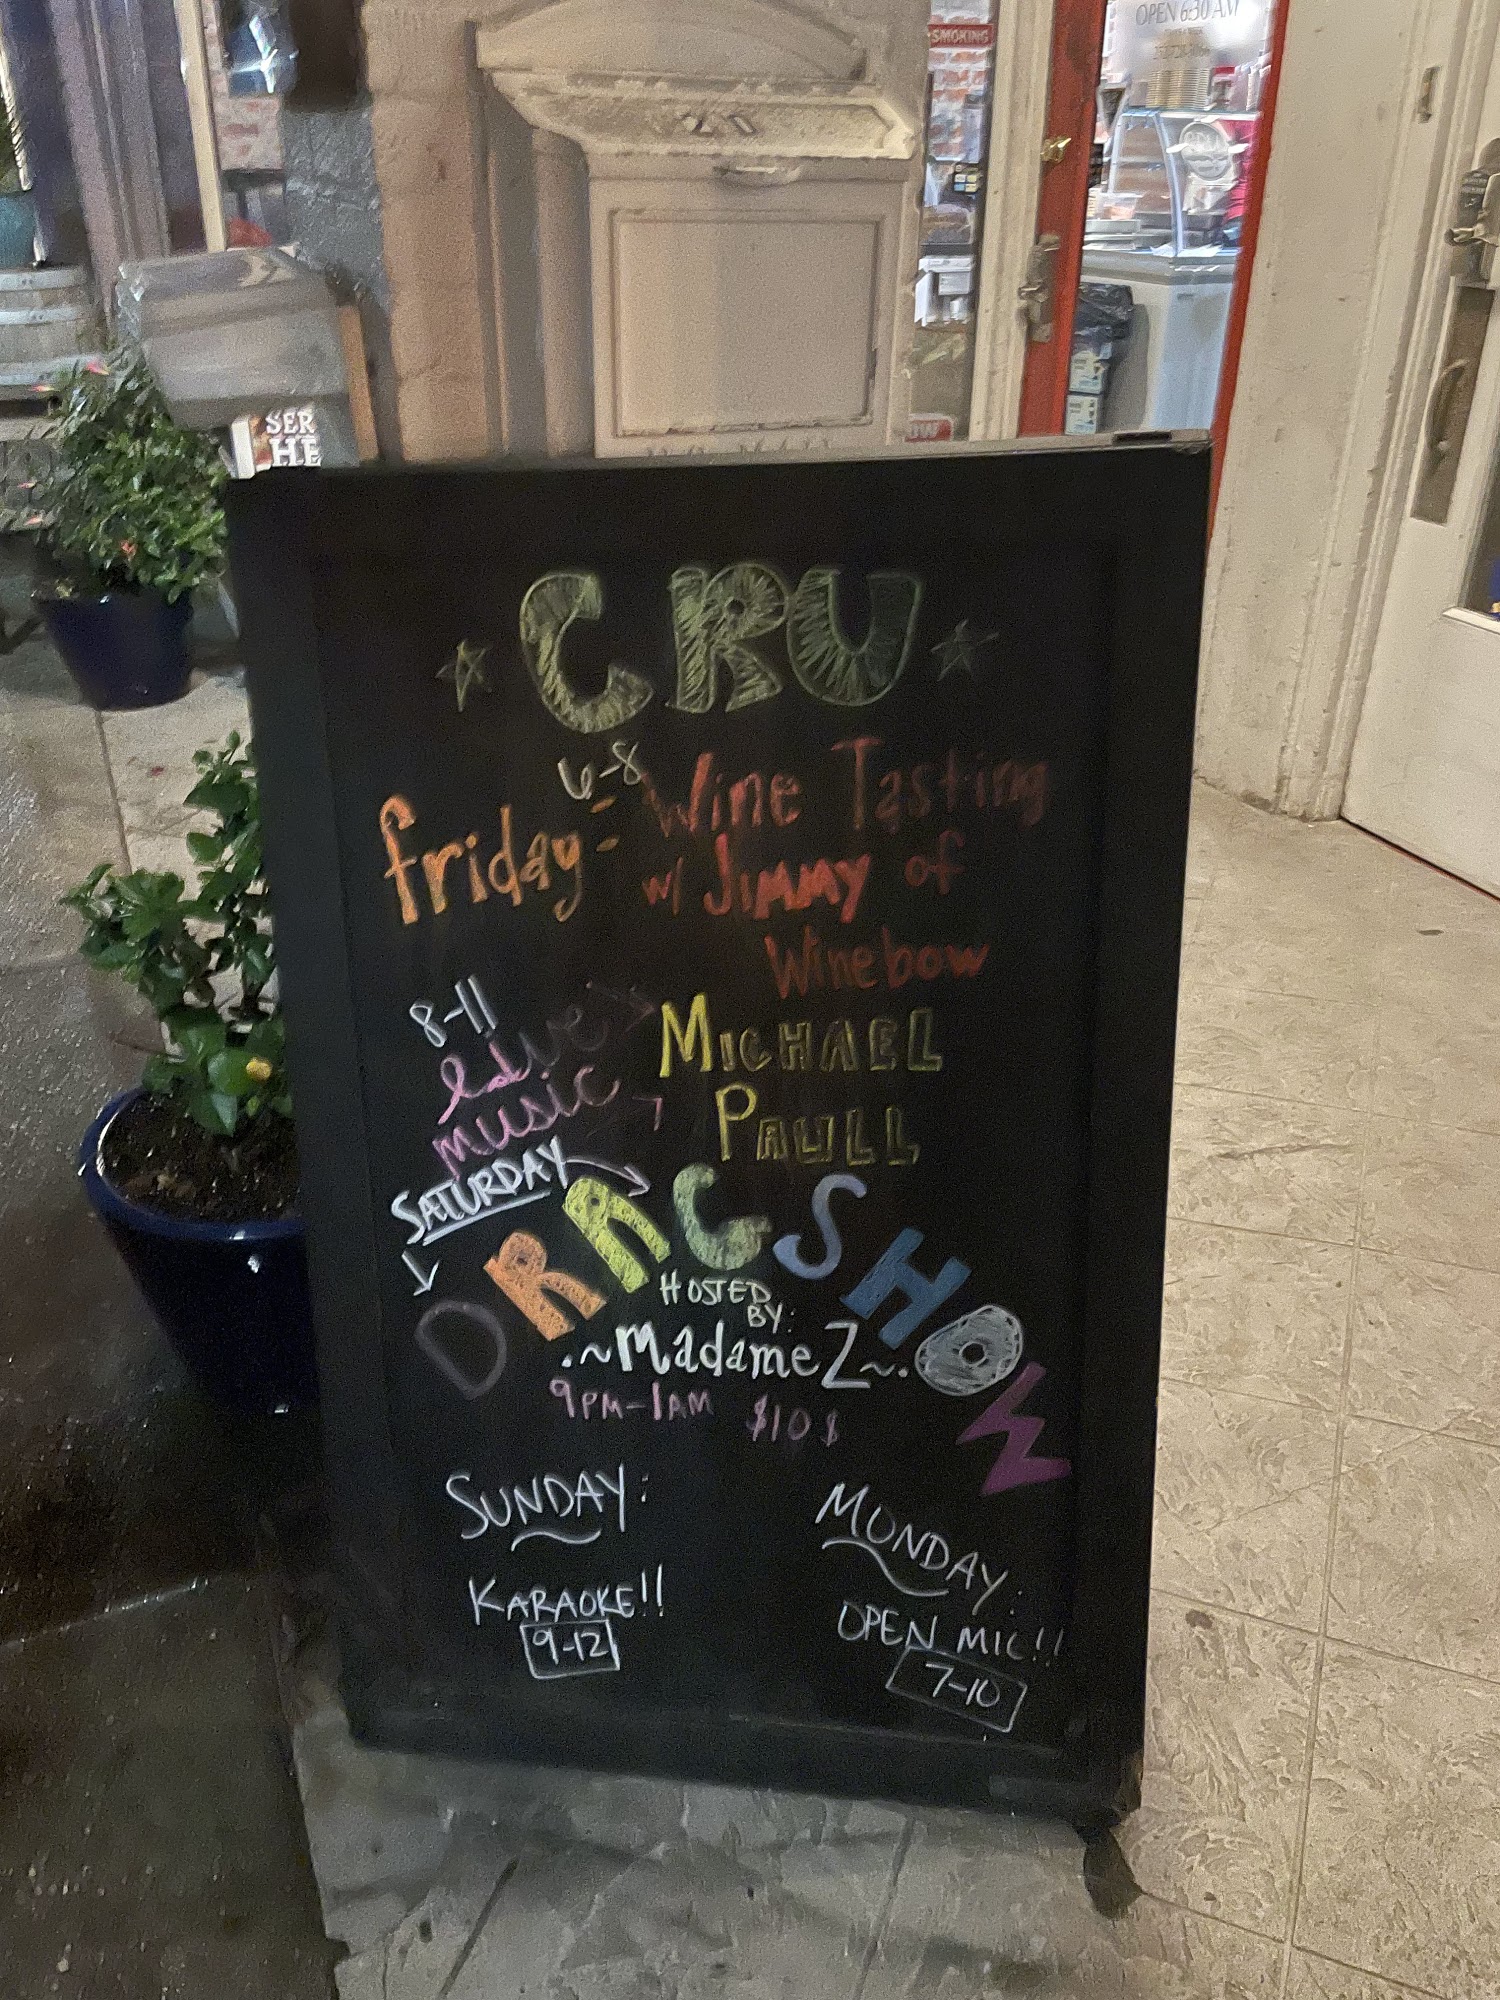 OPEN 6:30 AM
SMOKING
SER
HE
CRU
6-8
friday - Wine Tasting
w/ JIMMY of
Winebow
8-11
Live
music
MICHAEL
PAULL
SATURDAY
DRAG SHOW
HOSTED
BY:
.~Madame Z~.
9PM-1AM $10$
SUNDAY:
KARAOKE!!
9-12
MONDAY:
OPEN MIC!!
7-10